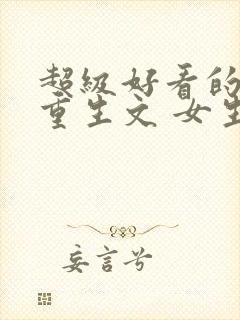 超级好看的
重生文 女生
妄言兮